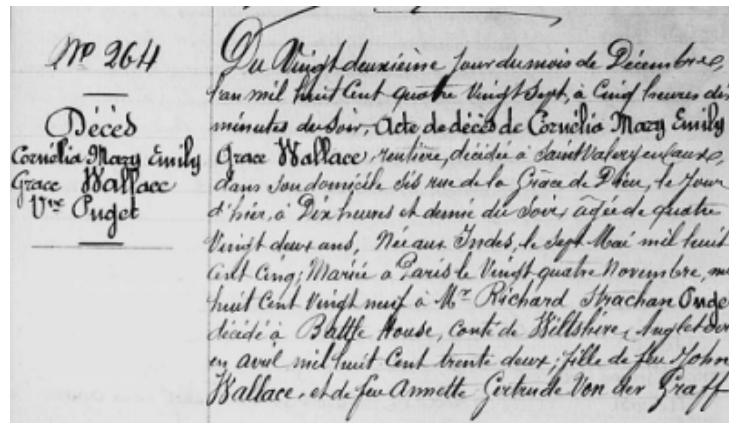 Nº 264
Décès
Cornélia Mary Emily
Grace Wallace
Vve Puget
Du Vingt deuxième jour du mois de Décembre,
l'an mil huit Cent quatre Vingt Sept, à Cinq heures dix
minutes du soir, Acte de décès de Cornélia Mary Emily
Grace Wallace, rentière, décédée à Saint Valery en Caux,
dans son domicile sis rue de la Grâce de Dieu, le jour
d'hier, à Dix heures et demie du Soir, âgée de quatre
Vingt deux ans, Née aux Indes, le Sept Mai mil huit
Cent Cinq; Mariée à Paris le Vingt quatre Novembre, mil
huit Cent Vingt neuf à Mr Richard Strachan Puget
décédé à Battle House, conté de Wiltshire, Angleterre
en avril mil huit Cent trente deux; fille de feu John
Wallace, et de feu Annette Gertrude Von der Graff